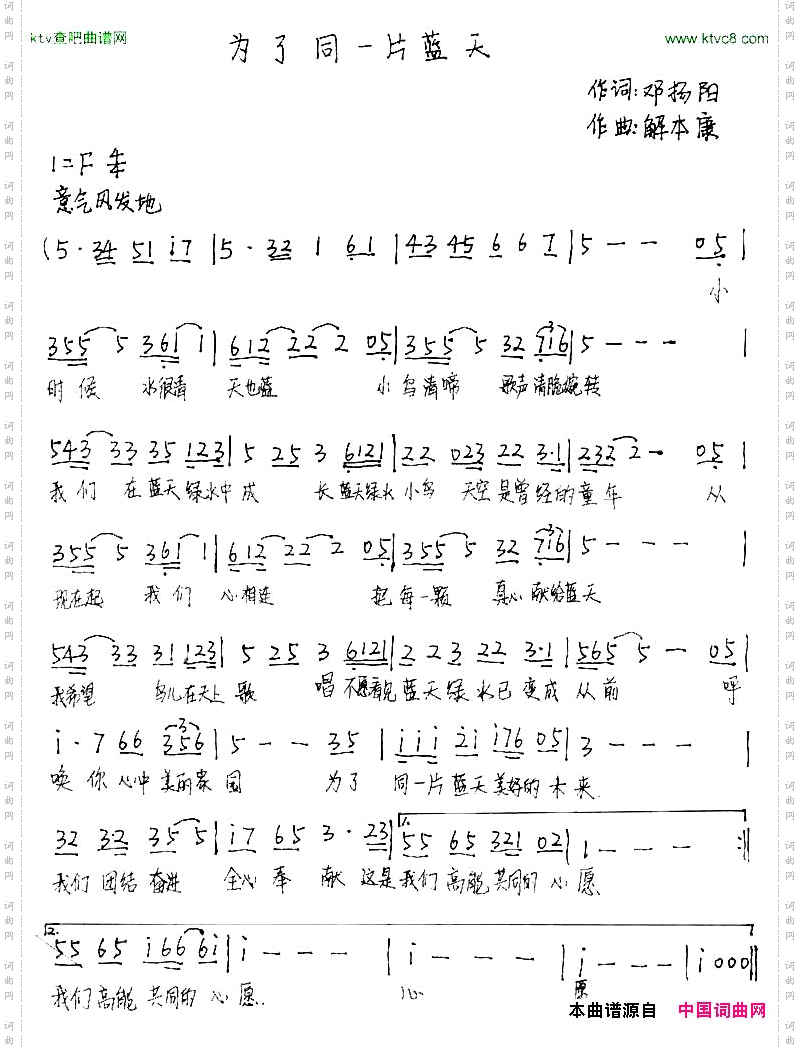 ktv查吧曲谱网 www.ktvc8.com
为了同一片蓝天
作词:邓扬阳
作曲:解本康
1=F 4/4
意气风发地
(5·34 51 i7|5·32 1 61|43 45 6 6 7|5 - - 05|
小
355 5 361 1|612 22 2 05|355 5 32 716|5 - - -|
时候 水很清 天也蓝 小鸟清啼 歌声清脆婉转
543 33 35 123|5 25 3 6121|22 023 22 3·1|232 2 - 05|
我们 在蓝天绿水中成 长 蓝天绿水 小鸟 天空是曾经的童年 从
355 5 361 1|612 22 2 05|355 5 32 716|5 - - -|
现在起 我们 心相连 把每一颗 真心献给蓝天
543 33 31 123|5 25 3 6121|2 23 22 3·1|565 5 - 05|
我希望 鸟儿在天上歌 唱 不愿看见蓝天绿水已变成从前 呼
i·7 66 356|5 - - 35|iii 2i i76 05|3 - - -|
唤你心中美丽家园 为了 同一片蓝天美好的未来.
32 3·2 35 5|i7 65 3·23|1. 55 65 321 02|1 - - -:||
我们团结奋进 全心奉献 这是我们高能共同的心愿
2. 55 65 i66 6i|i - - -|i - - -|i - - -|i000||
我们高能共同的心愿. 心 愿
本曲谱源自 中国词曲网